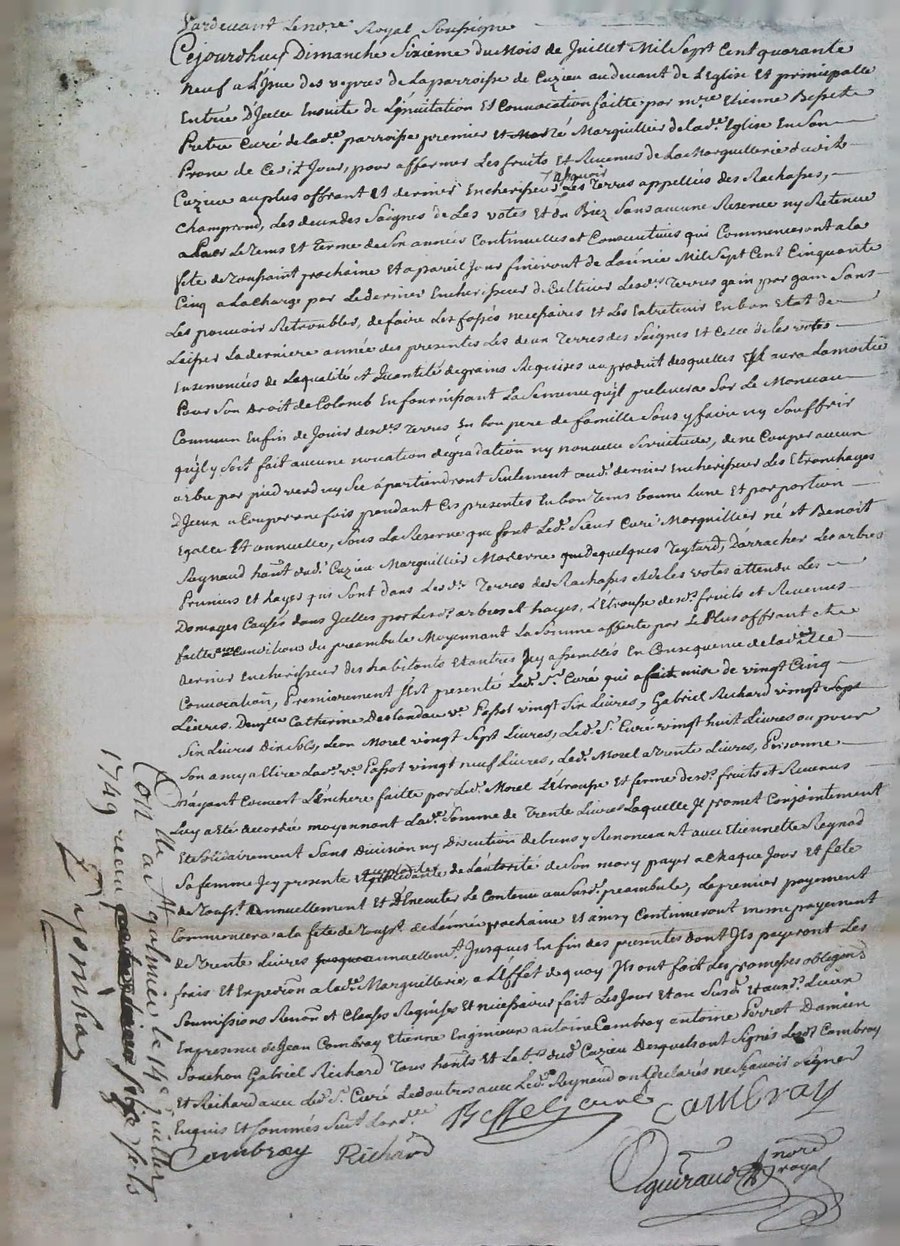 Pardevant le no.re Royal soussigné
Cejourdhuy Dimanche sixième du mois de Juillet mil sept cent quarante
neuf a l'jssue des vepres de la parroisse de Cuzieu audevant de l'Eglise et principalle
Entrée D'jcelle Ensuite de l'jnvitation et Convocation faitte par m.re Etienne Bessette
Pretre Curé de lad.e parroisse premier et Marguillier de lad.e Eglise En son
Prone de Ce dit Jour, pour affermer les fruits et Revenus de la Marguillerie dudit
Cuzieu au plus offrant et dernier Encherisseur, les Terres appellées des Rachasses,
Champrond, les deux des Saignes de les votes et du Biez sans aucune Reserve ny Retenue
le tems et terme de six années Continuelles et Consecutives qui Commenceront a la
fête de Toussaint prochaine et a pareil jour finiront de l'année Mil Sept Cent Cinquante
Cinq a la charge par le dernier Encherisseur de Cultiver lesd. Terres gain par gain Sans
les pouvoir Retroubler, de faire les fossés necessaires et les Entretenir En bon Etat de
laisser la derniere année des presentes les deux Terres des Saignes et Celle de les votes
Ensemencées de la qualité et Quantité de grains Requises au produit desquelles jl aura la moitié
Pour Son droit de Colomb En fournissant la Semence qu'jl prelevera Sur le Monceau
Commun Enfin de Jouir desd.s Terres En bon pere de famille Sans y faire ny Souffrir
qu'jl y Soit fait aucune novation dégradation ny nouvelle Servitude, de ne Couper aucun
arbre par pied verd ny Sec appartiendront Seulement aud. dernier encherisseur les Etronchages
D'jceux a Couper une fois pendant Ces presentes En bon tems bonne lune et par portion
Egalle et annuelle, sous la Reserve que font led. Sieur Curé Marguillier né et Benoit
Reynaud hant dud. Cuzieu Marguillier Moderne de quelques Teytard, D'arracher les arbres
Pruniers et hayes qui Sont dans lesd.s Terres des Rachasses et de les votes attendu les
Domages Causés dans Jcelles par lesd. arbres et hayes, l'Etrousse desd. fruits et Revenus
faitte aux Conditions du preambule Moyennant la Somme offerte par le Plus offrant et
dernier Encherisseur des habitants et autres Jcy assemblés En Consequence de lad.
Convocation, Premierement s'est presenté led. S.r Curé qui a fait mise de vingt Cinq
Livres. Catherine Deslandes v.e Passot vingt Six Livres, Gabriel Richard vingt
Six Livres Dix Sols, Leon Morel vingt Sept Livres, led. S. Curé vingt huit Livres ou pour
Son amy a Elire lad. v.e Passot vingt neuf Livres, led. Morel a Trente Livres, Personne
N'ayant Couvert L'enchere faitte par led. Morel l'Etrousse et ferme desd. fruits et Revenus
Luy a eté accordée moyennant lad. Somme de Trente Livres Laquelle Jl promet Conjointement
Et Solidairement Sans Division ny Discution de biens y Renoncant avec Etiennette Reynod
Sa femme Jcy presente de l'autorité de Son mary payer a Chaque Jour et fête
de Touss.t annuellement et D'Executer le Contenu au Susd. preambule, le premier payement
Commencera a la fête de Touss.t de l'année prochaine et ainsy Continueront meme payement
de Trente Livres annuellem.t Jusques En fin des presentes dont Jls payeront les
frais et Expedition a lad. Marguillerie, a l'Effet de quoy Jls ont fait les promesses obligeons
Soumissions Renon.s et Clauses Requises et necessaires fait les Jour et an Susd.s et aud. Lieu
En presence de Jean Combray Etienne Enginieux antoine Combray antoine Perret Damien
Souchon Gabriel Richard Tous hants et Lab.rs dud. Cuzieu Desquels ont Signés lesd. Combray
Et Richard avec led. S. Curé les autres avec led. Reynaud ont declarés ne Scavoir Signer
Enquis et Sommés Suiv.t l'ord.ce
Bessette Curé Combray
Combray Richard
Aguiraud no.re royal
Con.lle a St galmier le 14e juillet
1749 recu Sols